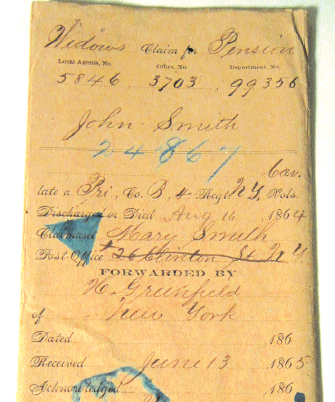 Widows Claim for Pension
Local Agents, No. Office, No. Department, No.
5846, 3703, 99356
John Smith
24867
Cav.
late a Pri, Co. B, 4 Regt N.Y. Vols.
Discharged or Died Aug 16, 1864
Claimant Mary Smith
Post-Office 26 Clinton St N Y
FORWARDED BY
H. Greenfield
of New York
Dated 186
Received June 13 1865
Acknowledged 186